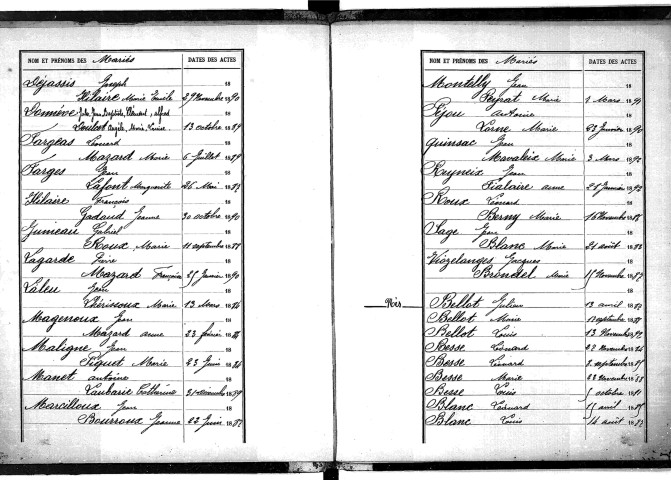 NOM ET PRÉNOMS DES Mariés DATES DES ACTES
Déjassis Joseph 18
Hilaire Marie 29 Novembre 1890
Jules Jean Baptiste, Alfred 18
Angèle, Marie, Louise. 13 octobre 1889
Fargeas Léonard 18
Mazard Marie 6 Juillet 1889
Farges Jean 18
Lafont Marguerite 26 Mai 1883
Hilaire François 18
Gadaud Jeanne 30 octobre 1890
Jumeau Gabriel 18
Roux Marie 11 septembre 1888
Lagarde Pierre 18
Mazard Françoise Janvier 1890
Laleu Jean 18
Thérissoux Marie 13 Mars 1886
Magenoux Jean 18
Mazard anne 23 février 18
Maligne Jean 18
Piquet Marie 23 Juin 1886
Manet antoine 18
Laubarie Catherine 1889
Marcilloux Jean 18
Bourroux Jeanne 23 Juin 1883
NOM ET PRÉNOMS DES Mariés DATES DES ACTES
Montelly Jean 18
Peyrat Marie Mars 18
Pijou antoine 18
Lorne Marie 23 Janvier 1890
Quinsac Jean 18
Mavaleix Marie 3 Mars 1890
Rayneix Jean 18
Lialaire anne Janvier 18
Roux Léonard 18
Berny Marie 16 Novembre 1888
Sage Jean 18
Blanc Marie 21 août 1888
Viozelanges Jacques 18
Brondel Marie Novembre 1887
18
Bellot Julien 13 avril 1883
Bellot Marie septembre 18
Bellot Louis 13 Novembre 18
Besse Léonard 22 Novembre 1886
Besse Léonard septembre 18
Besse Marie 22 Novembre 1888
Besse Louis octobre 1881
Blanc Léonard avril 18
Blanc Louis 14 août 1883